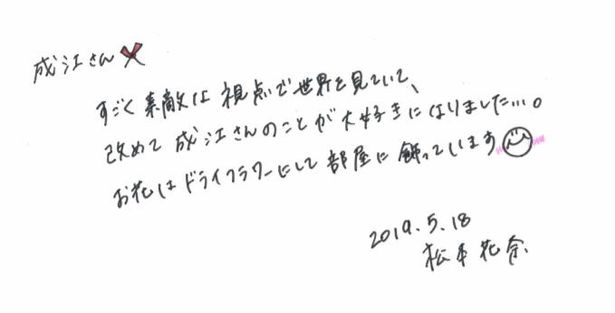 成江さん
すごく素敵な視点で世界を見ていて、
改めて成江さんのことが大好きになりました…。
お花はドライフラワーにして部屋に飾っています
2019.5.18
松本花奈